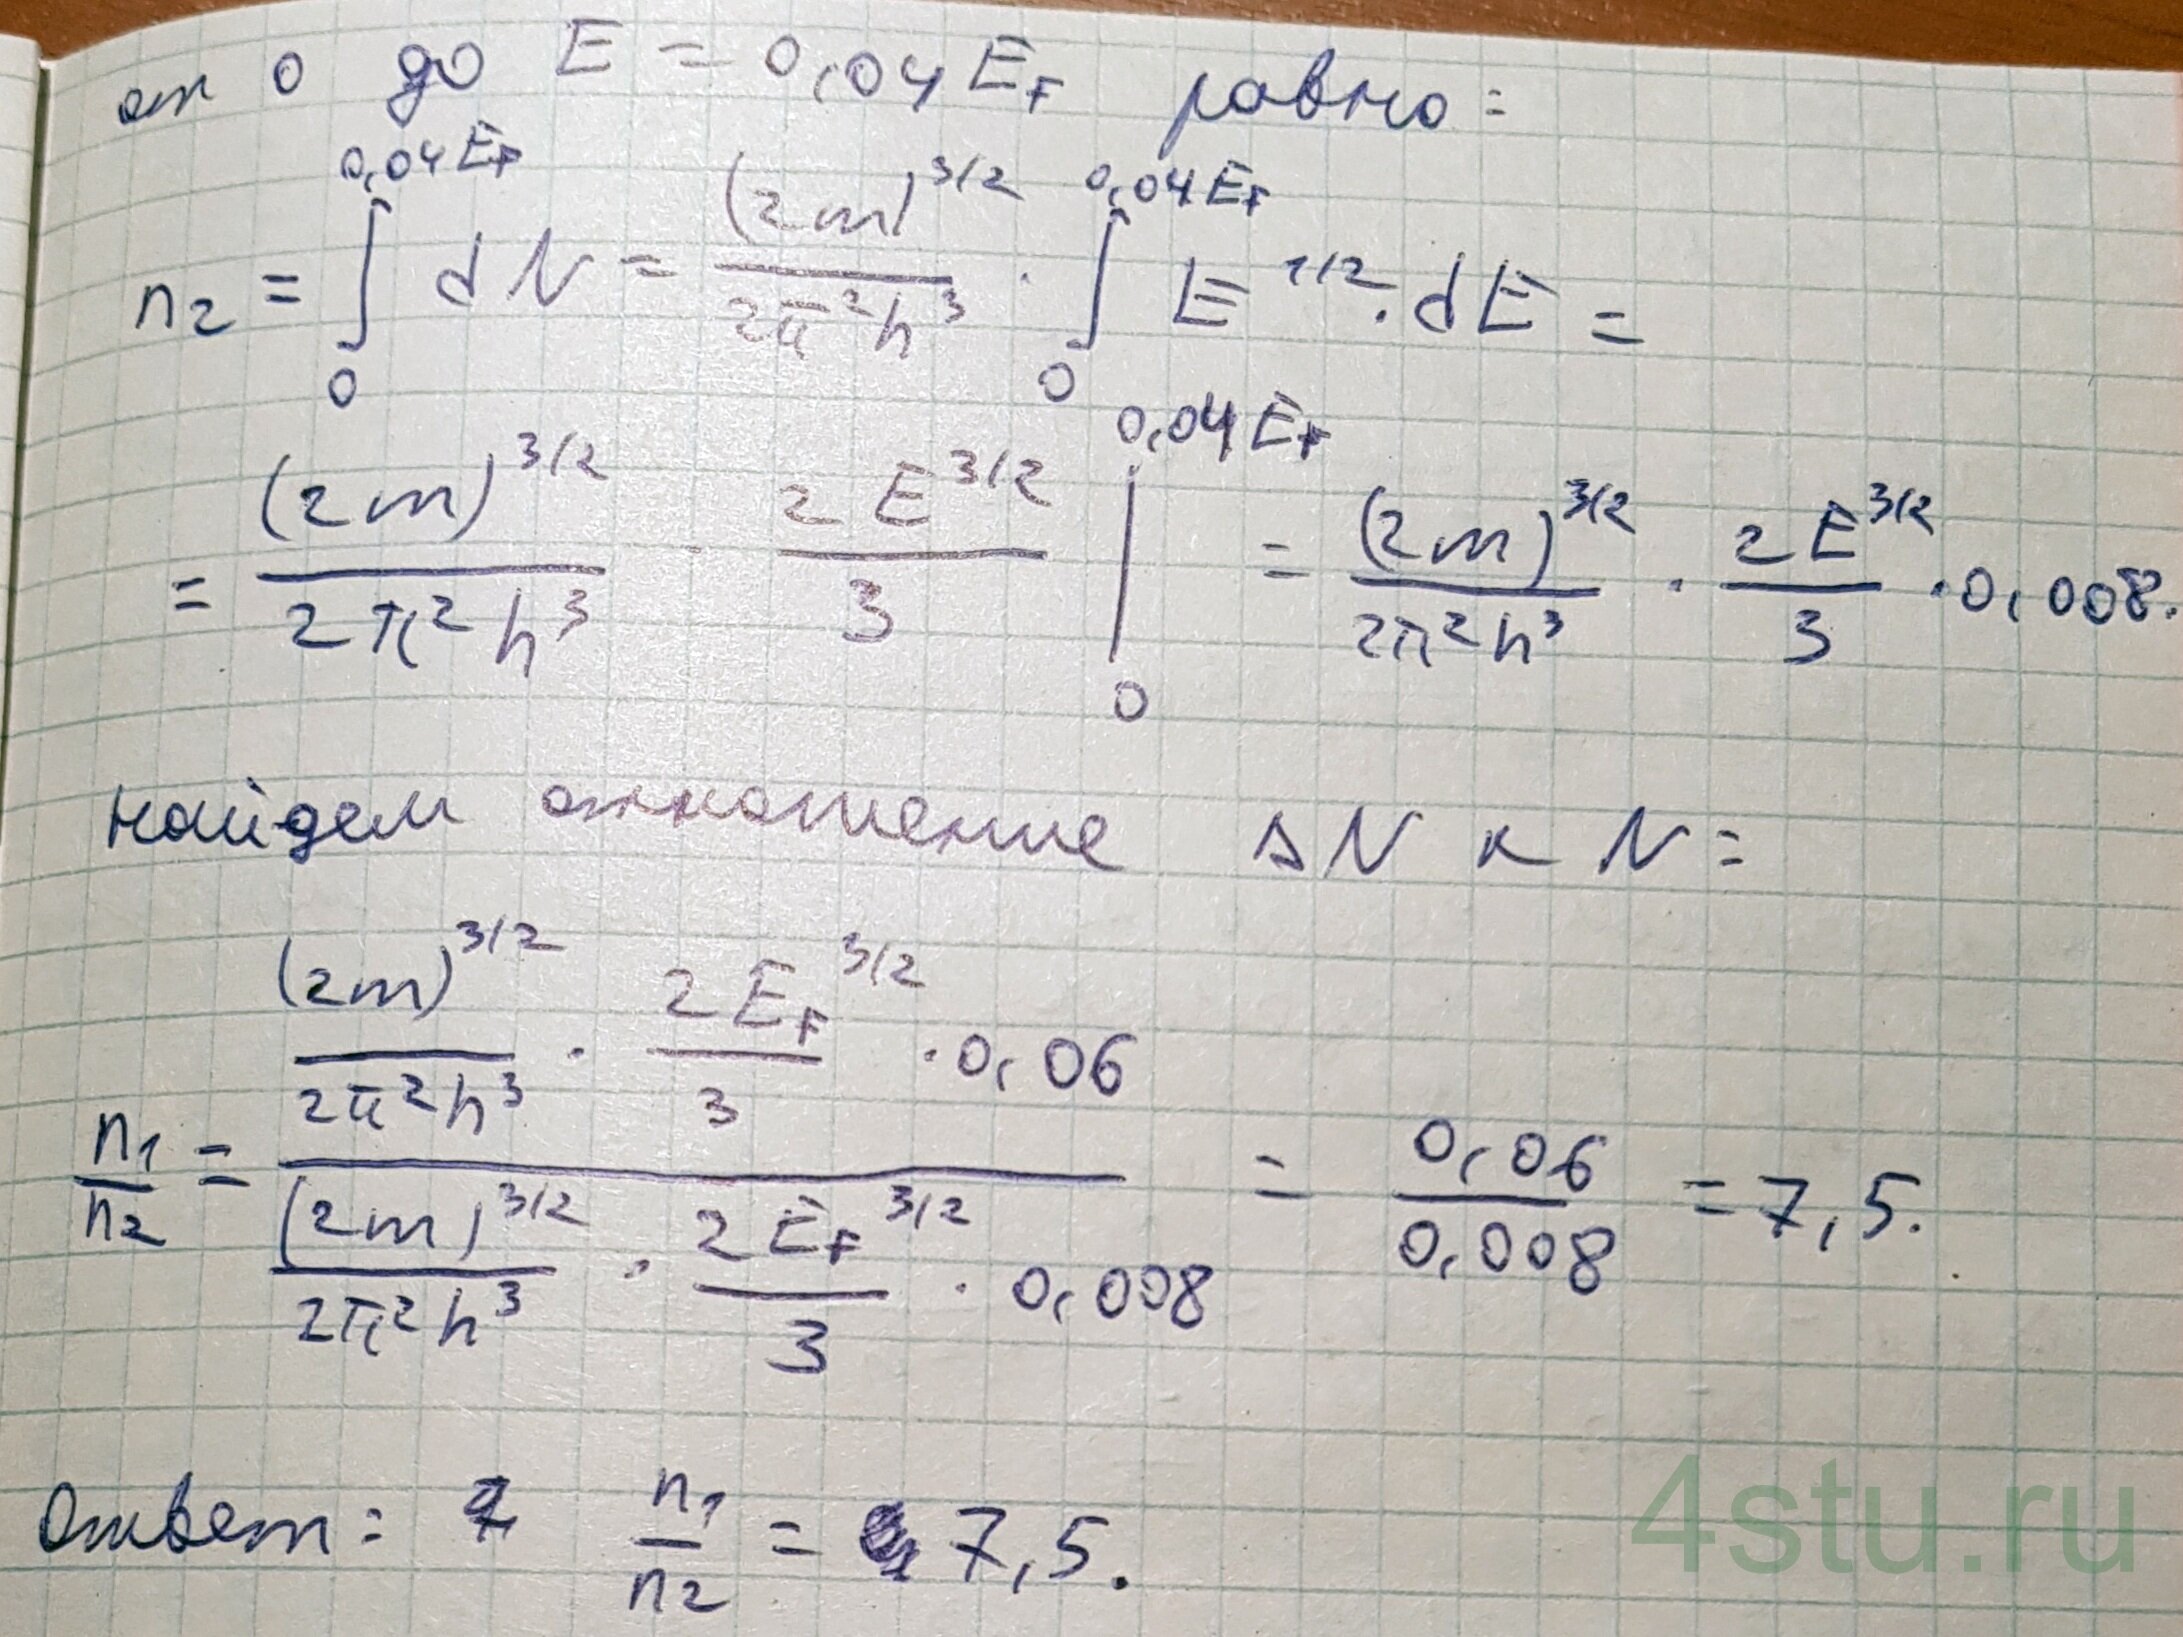 от 0 до E = 0,04 E_F равно:
n₂ = ∫₀^{0,04 E_F} dN = (2m)^{3/2} / 2π²ħ³ · ∫₀^{0,04 E_F} E^{1/2} · dE =
= (2m)^{3/2} / 2π²ħ³ · 2E^{3/2} / 3 |₀^{0,04 E_F} = (2m)^{3/2} / 2π²ħ³ · 2E^{3/2} / 3 · 0,008.
найдем отношение ΔN к N:
n₁/n₂ = ((2m)^{3/2} / 2π²ħ³ · 2E_F^{3/2} / 3 · 0,06) / ((2m)^{3/2} / 2π²ħ³ · 2E_F^{3/2} / 3 · 0,008) = 0,06 / 0,008 = 7,5.
Ответ: n₁/n₂ = 7,5.
4stu.ru